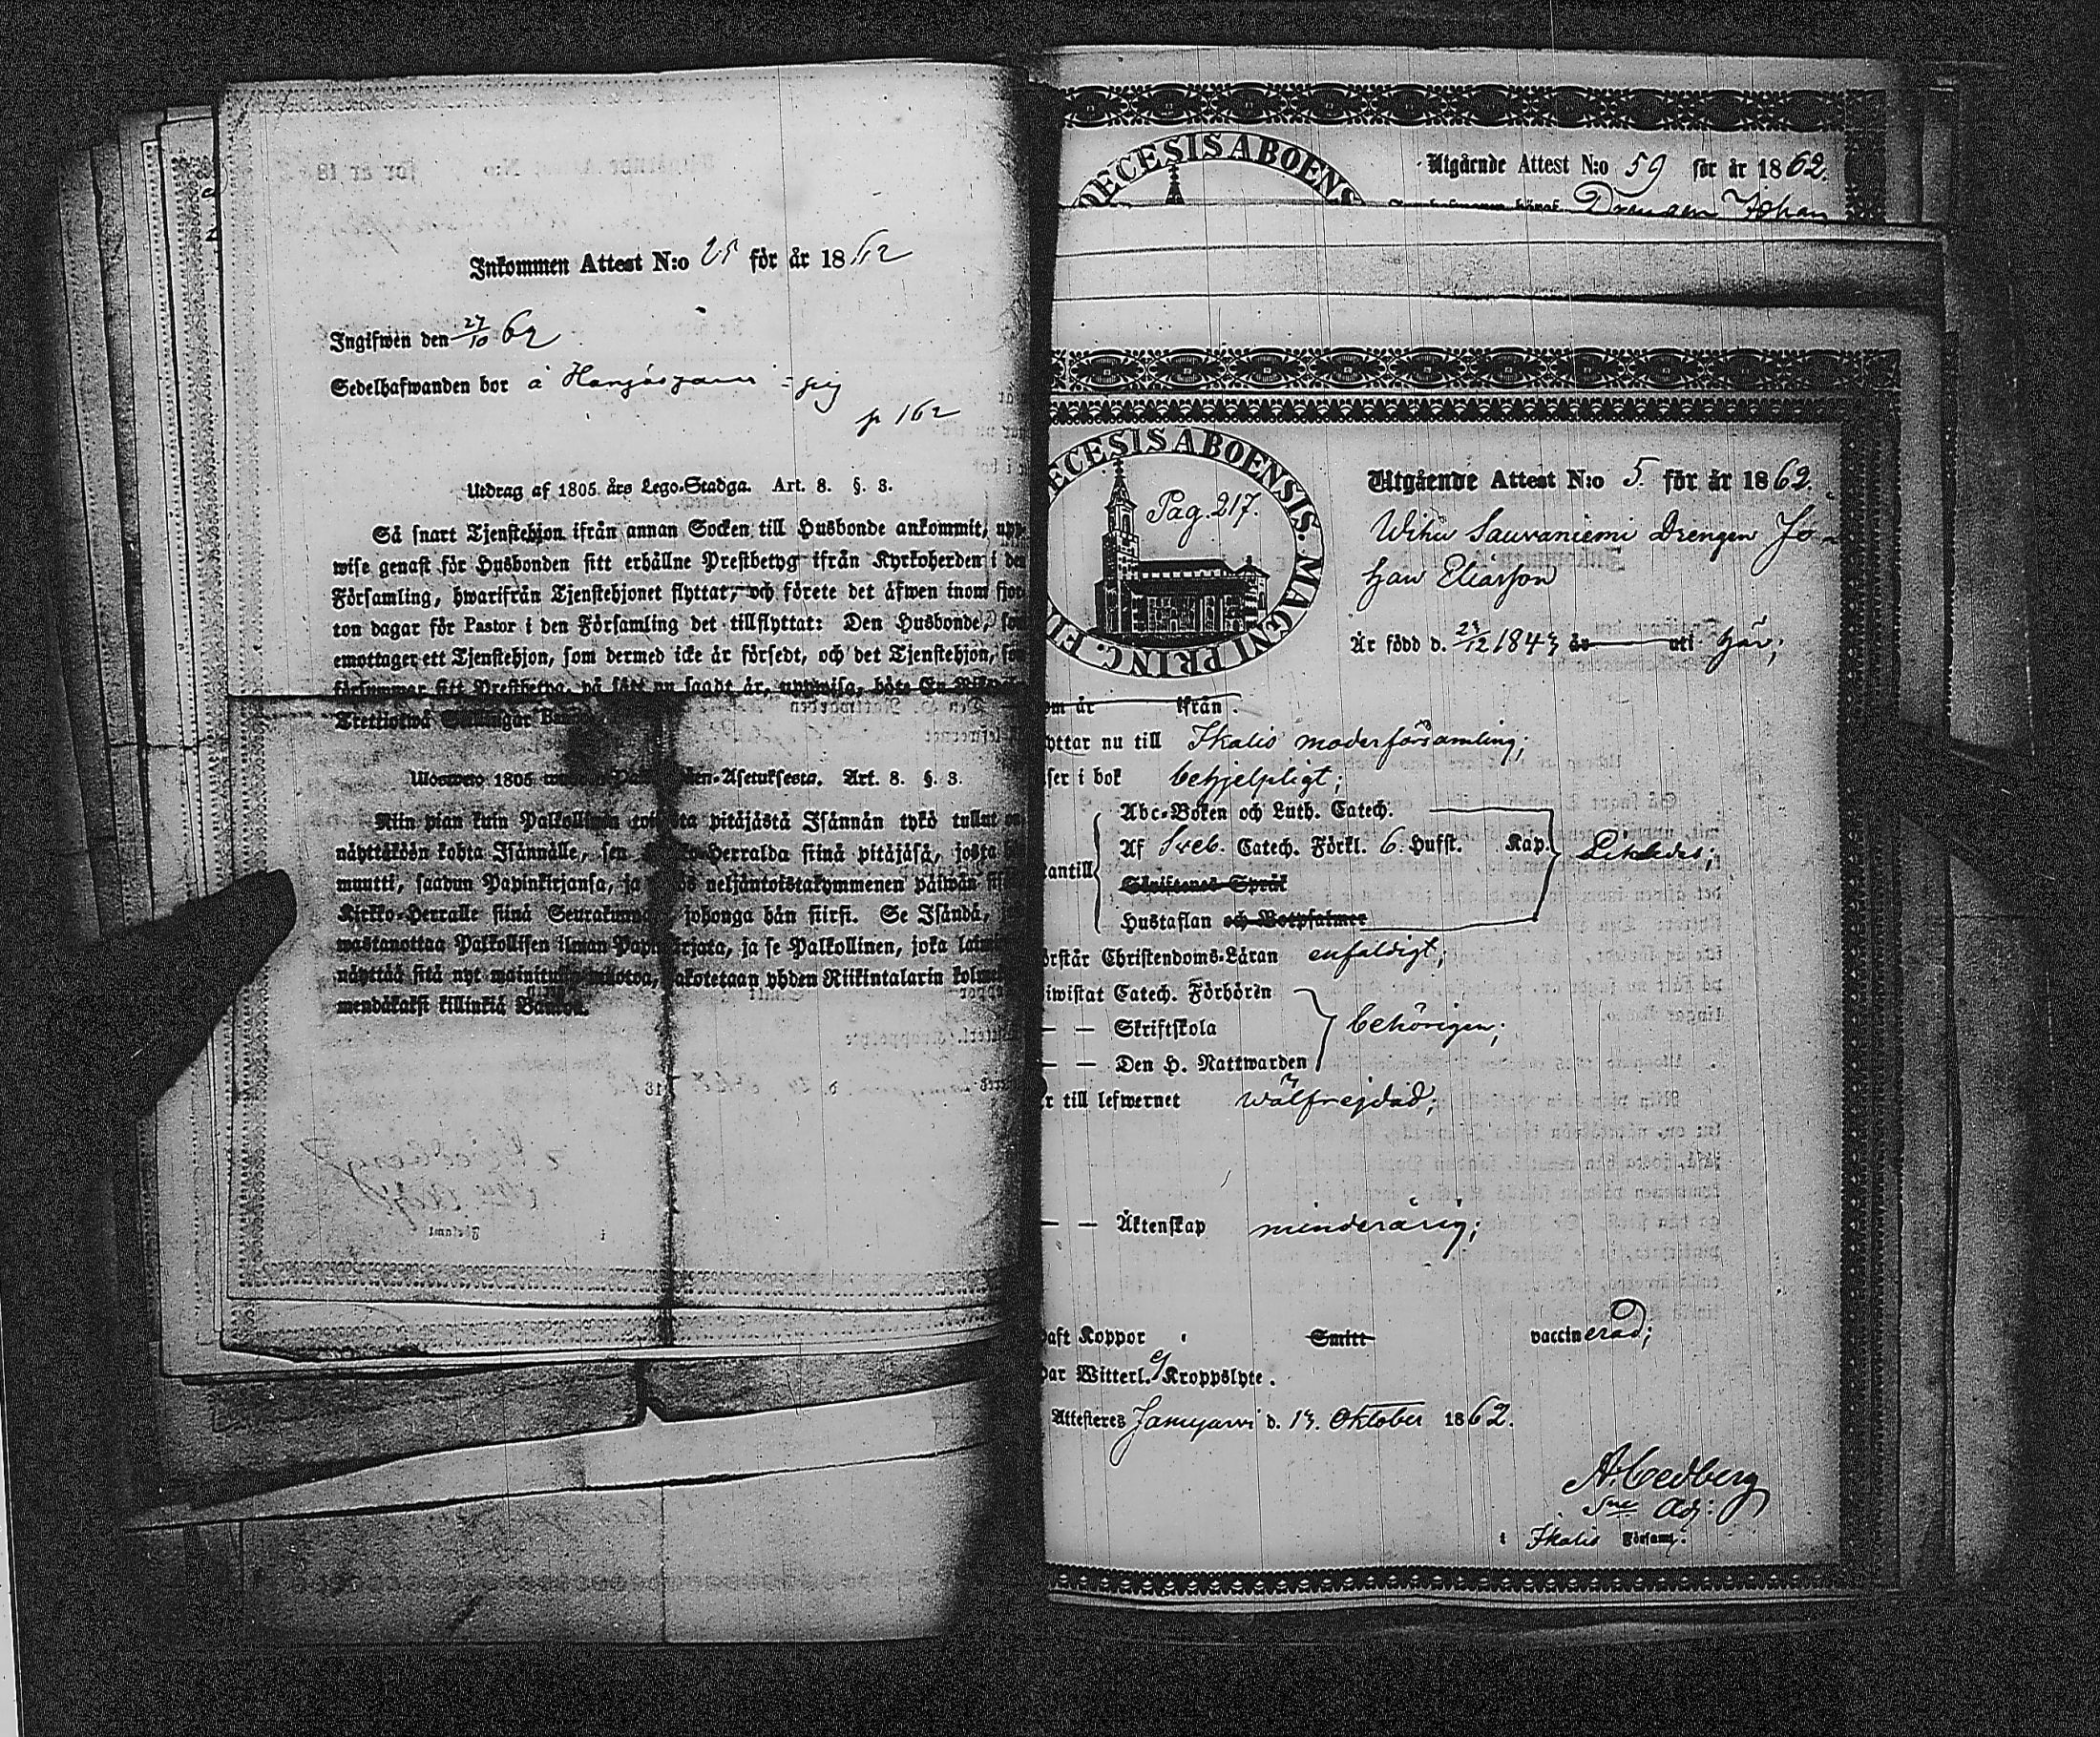 Inkommen Attest N:o 25 för år 1862
Ingifwen den 27/10 62
Sedelhafwanden bor å
p 162
Utdrag af 1805 års Lego-Stadga. Art. 8. §. 3.
Så snart Tjenstehjon ifrån annan Socken till Husbonde ankommit, upp
wise genast för Husbonden sitt erhållne Prestbetyg ifrån Kyrkoherden i den
Församling, hwarifrån Tjenstehjonet flyttat, och förete det äfwen inom fjor
ton dagar för Pastor i den Församling det tillflyttat: Den Husbonde, som
emottager ett Tjenstehjon, som dermed icke är försedt, och det Tjenstehjon, som
försummar sitt Prestbetyg, på sätt nu sagdt är, uppwisa, böte En Riksdaler
Trettiotwå Skillingar Banco.
Ulosweto 1805 Asetuksesta. Art. 8. §. 3.
Niin pian kuin Palkollinen toisesta pitäjästä Isännän tykö tullut on,
näyttäköön kohta Isännälle, sen Kirkko-Herralda siinä pitäjäsä, josta
muutti, saadun Papinkirjansa, ja neljäntoistakymmenen päiwän
Kirkko-Herralle siinä Seurakunnasa, johonga hän siirsi. Se Isändä,
wastanottaa Palkollisen ilman Papinkirjata, ja se Palkollinen, joka
näyttää sitä nyt mainitulla muotoa, sakotetaan yhden Riikintalarin
mendäkaksi killinkiä Bankoa.
DECESIS ABOENS
Utgående Attest N:o 59 för år 1862.
Drengen Johan
ECESIS ABOENSIS. MAGNI PRINC. FI
Pag. 217.
Utgående Attest N:o 5. för år 1862.
Wihu Sauvaniemi Drengen Jo-
han Eliasson
Är född d. 23/12 1843 år uti här;
om är ifrån
yttar nu till Ikalis moderförsamling;
ser i bok behjelpligt;
Abc-Boken och Luth. Catech.
Af Sveb. Catech. Förkl. 6. Hufst. Kap.
antill
Skriftenes Språk
Hustaflan och Botpsalmer
örstår Christendoms-Läran enfaldigt;
iwistat Catech. Förhören
— — Skriftskola behörigen;
— — Den H. Nattwarden
r till lefwernet wälfrejdad;
— — Äktenskap minderårig;
haft Koppor Smitt vaccinerad;
har Witterl. ej Kroppslyte.
Attesteres Jämijärwi d. 13. Oktober 1862.
A. Cedberg
Sne Adj:
i Ikalis Församl.